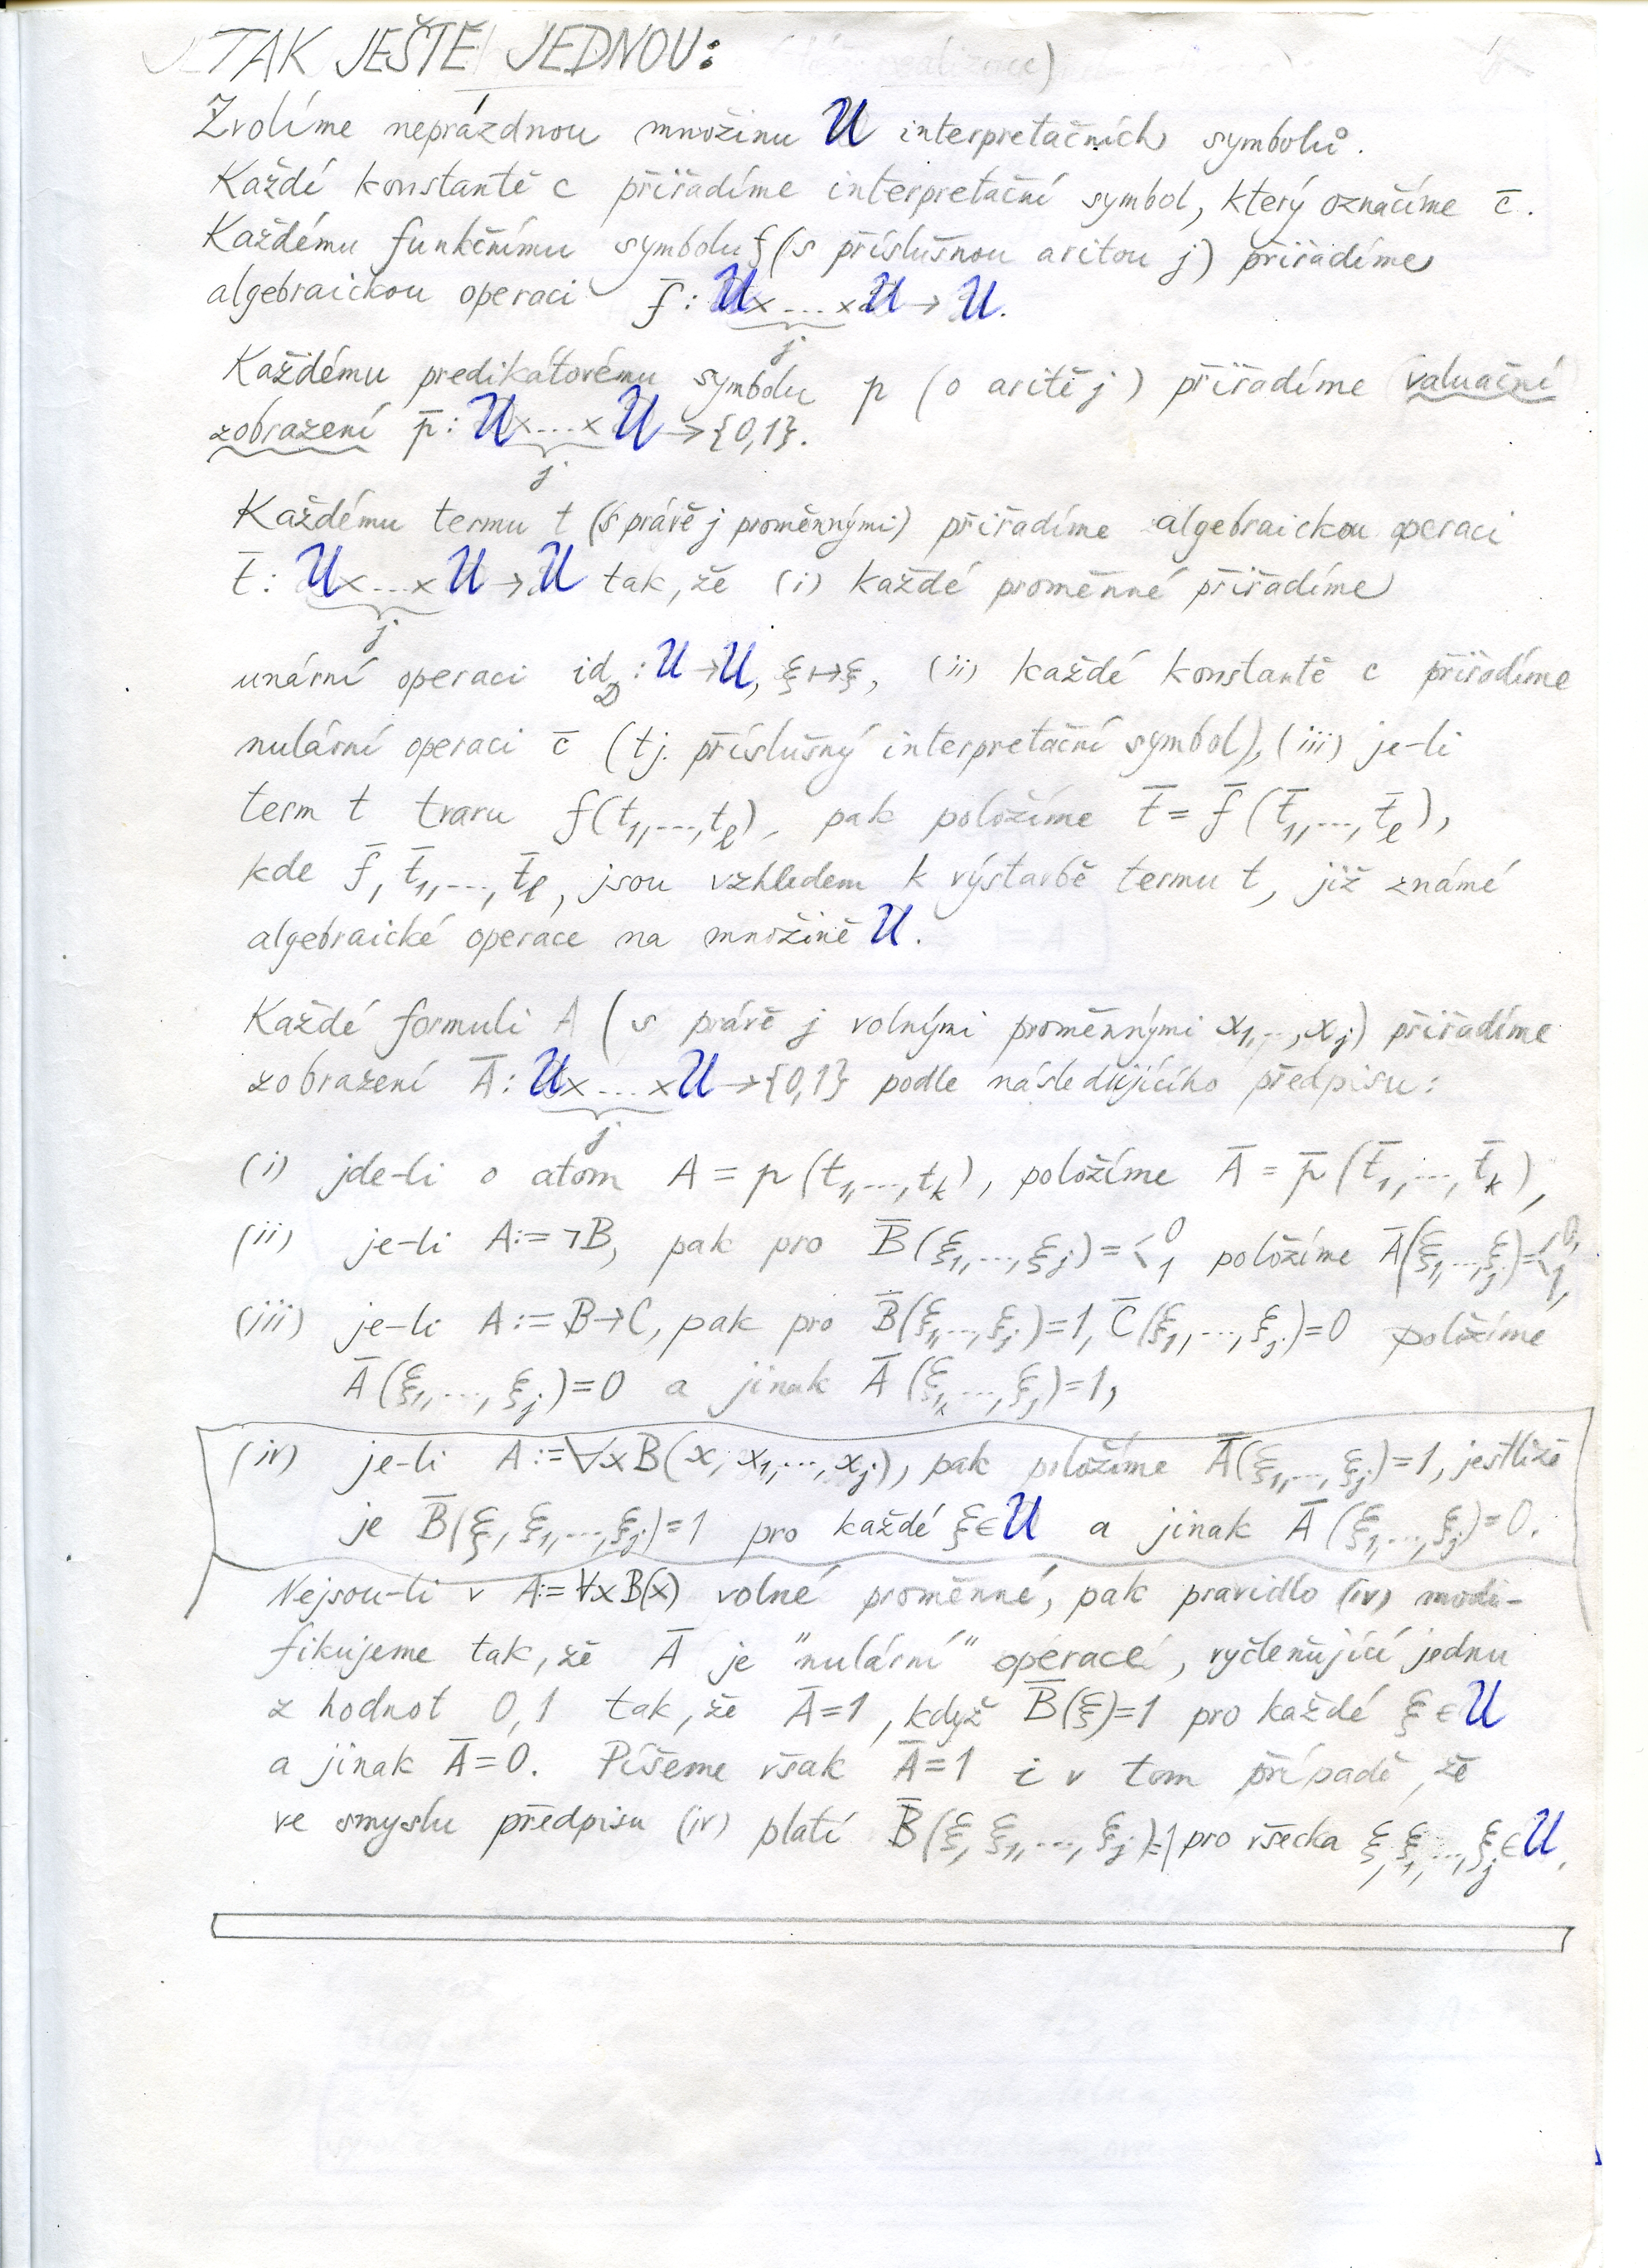 TAK JEŠTĚ JEDNOU:
Zvolíme neprázdnou množinu U interpretačních symbolů.
Každé konstantě c přiřadíme interpretační symbol, který označíme c̄.
Každému funkčnímu symbolu f (s příslušnou aritou j) přiřadíme
algebraickou operaci f̄: U×...×U → U.
j
Každému predikátovému symbolu p (o aritě j) přiřadíme valuační
zobrazení p̄: U×...×U → {0,1}.
j
Každému termu t (s právě j proměnnými) přiřadíme algebraickou operaci
t̄: U×...×U → U tak, že (i) každé proměnné přiřadíme
j
unární operaci id : U → U, ξ ↦ ξ, (ii) každé konstantě c přiřadíme
nulární operaci c̄ (tj. příslušný interpretační symbol), (iii) je-li
term t tvaru f(t₁,...,tₗ), pak položíme t̄ = f̄(t̄₁,...,t̄ₗ),
kde f̄, t̄₁,...,t̄ₗ, jsou vzhledem k výstavbě termu t, již známé
algebraické operace na množině U.
Každé formuli A (s právě j volnými proměnnými x₁,...,xⱼ) přiřadíme
zobrazení Ā: U×...×U → {0,1} podle následujícího předpisu:
j
(i) jde-li o atom A = p(t₁,...,tₖ), položíme Ā = p̄(t̄₁,...,t̄ₖ),
(ii) je-li A:= ¬B, pak pro B̄(ξ₁,...,ξⱼ) = ⟨0 1 položíme Ā(ξ₁,...,ξⱼ) = ⟨0, 1,
(iii) je-li A:= B→C, pak pro B̄(ξ₁,...,ξⱼ)=1, C̄(ξ₁,...,ξⱼ)=0 položíme
Ā(ξ₁,...,ξⱼ)=0 a jinak Ā(ξ₁,...,ξⱼ)=1,
(iv) je-li A:=∀xB(x, x₁,...,xⱼ), pak položíme Ā(ξ₁,...,ξⱼ)=1, jestliže
je B̄(ξ, ξ₁,...,ξⱼ)=1 pro každé ξ∈U a jinak Ā(ξ₁,...,ξⱼ)=0.
Nejsou-li v A:=∀xB(x) volné proměnné, pak pravidlo (iv) modi-
fikujeme tak, že Ā je "nulární" operací, vyčleňující jednu
z hodnot 0,1 tak, že Ā=1, když B̄(ξ)=1 pro každé ξ∈U
a jinak Ā=0. Píšeme však Ā=1 i v tom případě, že
ve smyslu předpisu (iv) platí B̄(ξ, ξ₁,...,ξⱼ)=1 pro všecka ξ, ξ₁,...,ξⱼ∈U.